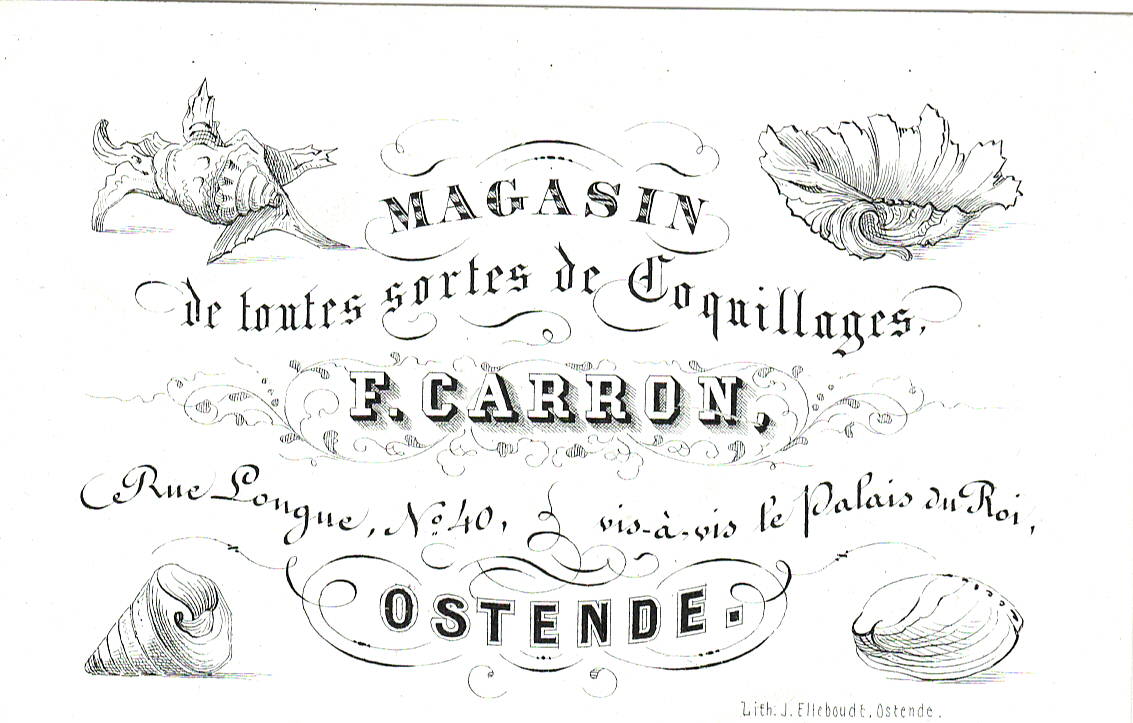 MAGASIN
de toutes sortes de Coquillages,
F. CARRON,
Rue Longue, No. 40, vis-à-vis le Palais du Roi,
OSTENDE.
Lith: J. Elleboudt, Ostende.